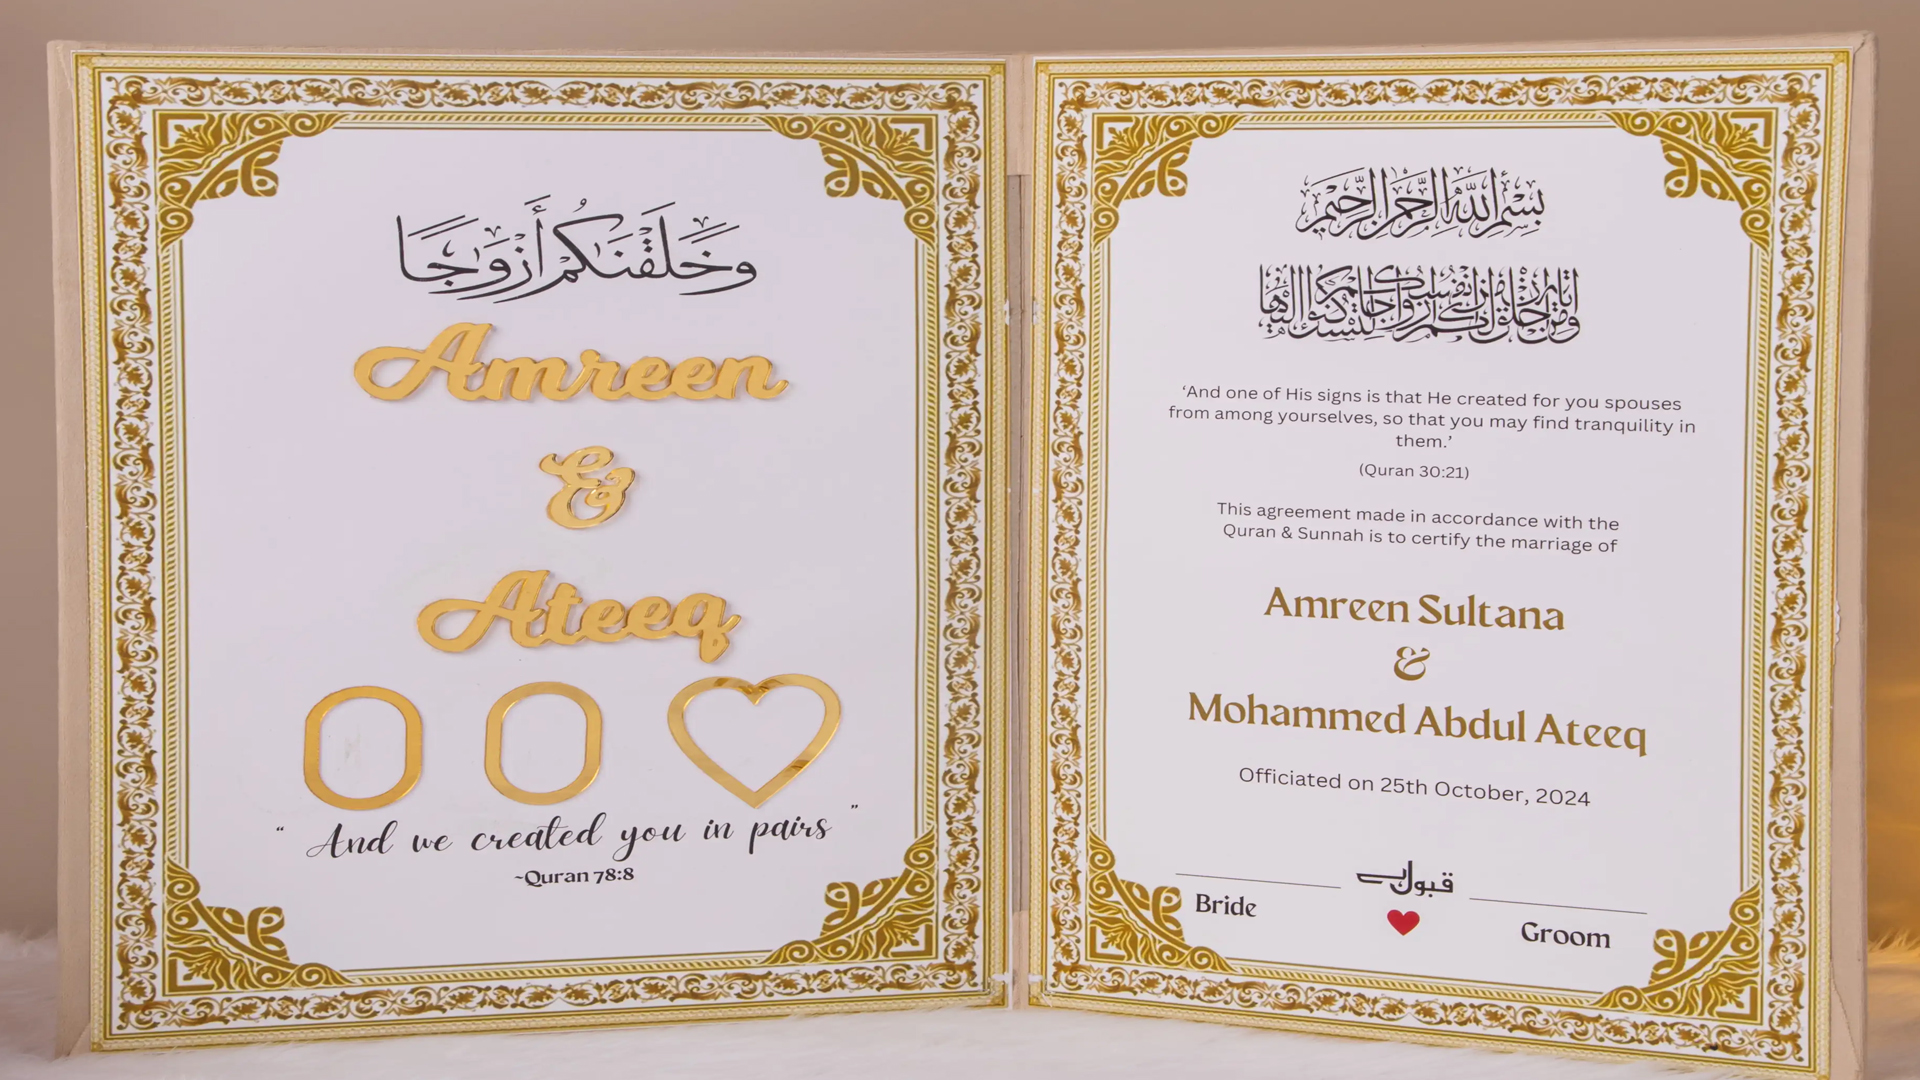 وَخَلَقْنَـٰكُمْ أَزْوَٰجًا
Amreen
&
Ateeq
“ And we created you in pairs ”
~Quran 78:8
بِسْمِ اللَّهِ الرَّحْمَٰنِ الرَّحِيمِ
ومن آياته أن خلق لكم من أنفسكم أزواجا لتسكنوا إليها
‘And one of His signs is that He created for you spouses
from among yourselves, so that you may find tranquility in
them.’
(Quran 30:21)
This agreement made in accordance with the
Quran & Sunnah is to certify the marriage of
Amreen Sultana
&
Mohammed Abdul Ateeq
Officiated on 25th October, 2024
قبول ہے
Bride
Groom